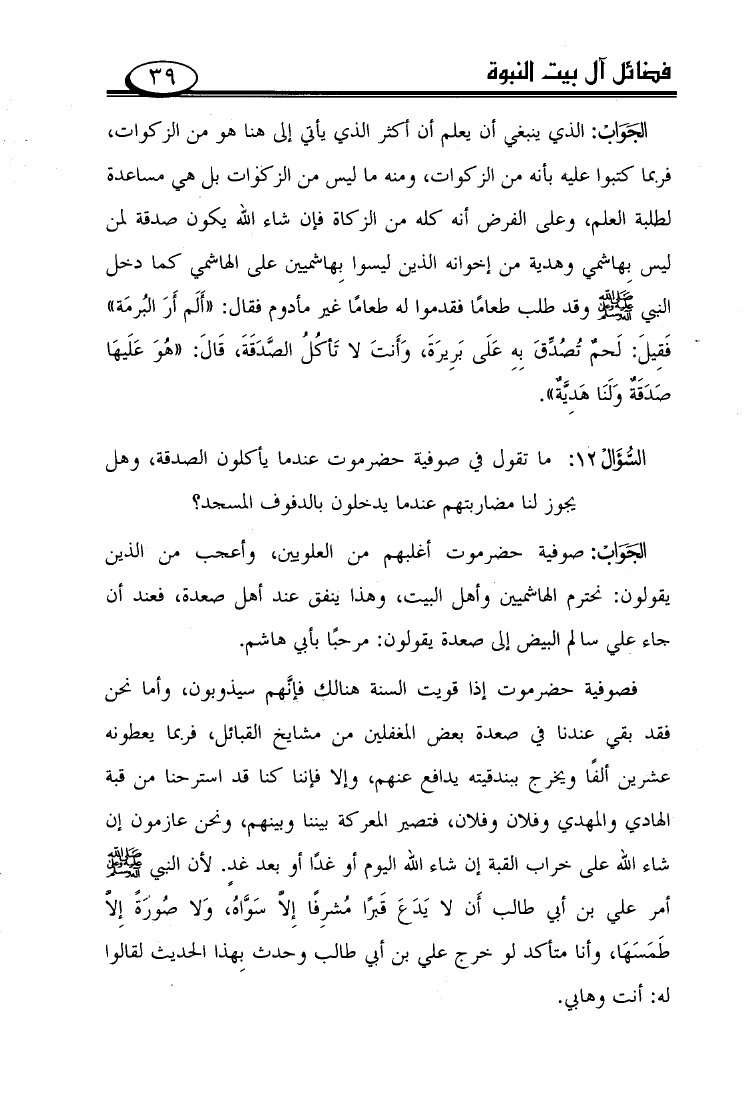 فضائل آل بيت النبوة
٣٩
الجَوَابُ: الذي ينبغي أن يعلم أن أكثر الذي يأتي إلى هنا هو من الزكوات،
فربما كتبوا عليه بأنه من الزكوات، ومنه ما ليس من الزكوات بل هي مساعدة
لطلبة العلم، وعلى الفرض أنه كله من الزكاة فإن شاء الله يكون صدقة لمن
ليس بهاشمي وهدية من إخوانه الذين ليسوا بهاشميين على الهاشمي كما دخل
النبي ﷺ وقد طلب طعامًا فقدموا له طعامًا غير مأدوم فقال: «أَلَم أَرَ البُرمَة»
فَقِيلَ: لَحمٌ تُصُدِّقَ بِهِ عَلَى بَرِيرَةَ، وَأَنتَ لا تَأكُلُ الصَّدَقَةَ، قَالَ: «هُوَ عَلَيهَا
صَدَقَةٌ وَلَنَا هَدِيَّةٌ».
السُّؤَالُ ١٢: ما تقول في صوفية حضرموت عندما يأكلون الصدقة، وهل
يجوز لنا مضاربتهم عندما يدخلون بالدفوف المسجد؟
الجَوَابُ: صوفية حضرموت أغلبهم من العلويين، وأعجب من الذين
يقولون: نحترم الهاشميين وأهل البيت، وهذا ينفق عند أهل صعدة، فعند أن
جاء علي سالم البيض إلى صعدة يقولون: مرحبًا بأبي هاشم.
فصوفية حضرموت إذا قويت السنة هنالك فإنَّهم سيذوبون، وأما نحن
فقد بقي عندنا في صعدة بعض المغفلين من مشايخ القبائل، فربما يعطونه
عشرين ألفًا ويخرج ببندقيته يدافع عنهم، وإلا فإننا كنا قد استرحنا من قبة
الهادي والمهدي وفلان وفلان، فتصير المعركة بيننا وبينهم، ونحن عازمون إن
شاء الله على خراب القبة إن شاء الله اليوم أو غدًا أو بعد غدٍ. لأن النبي ﷺ
أمر علي بن أبي طالب أَن لا يَدَعَ قَبرًا مُشرِفًا إِلاَّ سَوَّاهُ، وَلا صُورَةً إِلاَّ
طَمَسَهَا، وأنا متأكد لو خرج علي بن أبي طالب وحدث بهذا الحديث لقالوا
له: أنت وهابي.